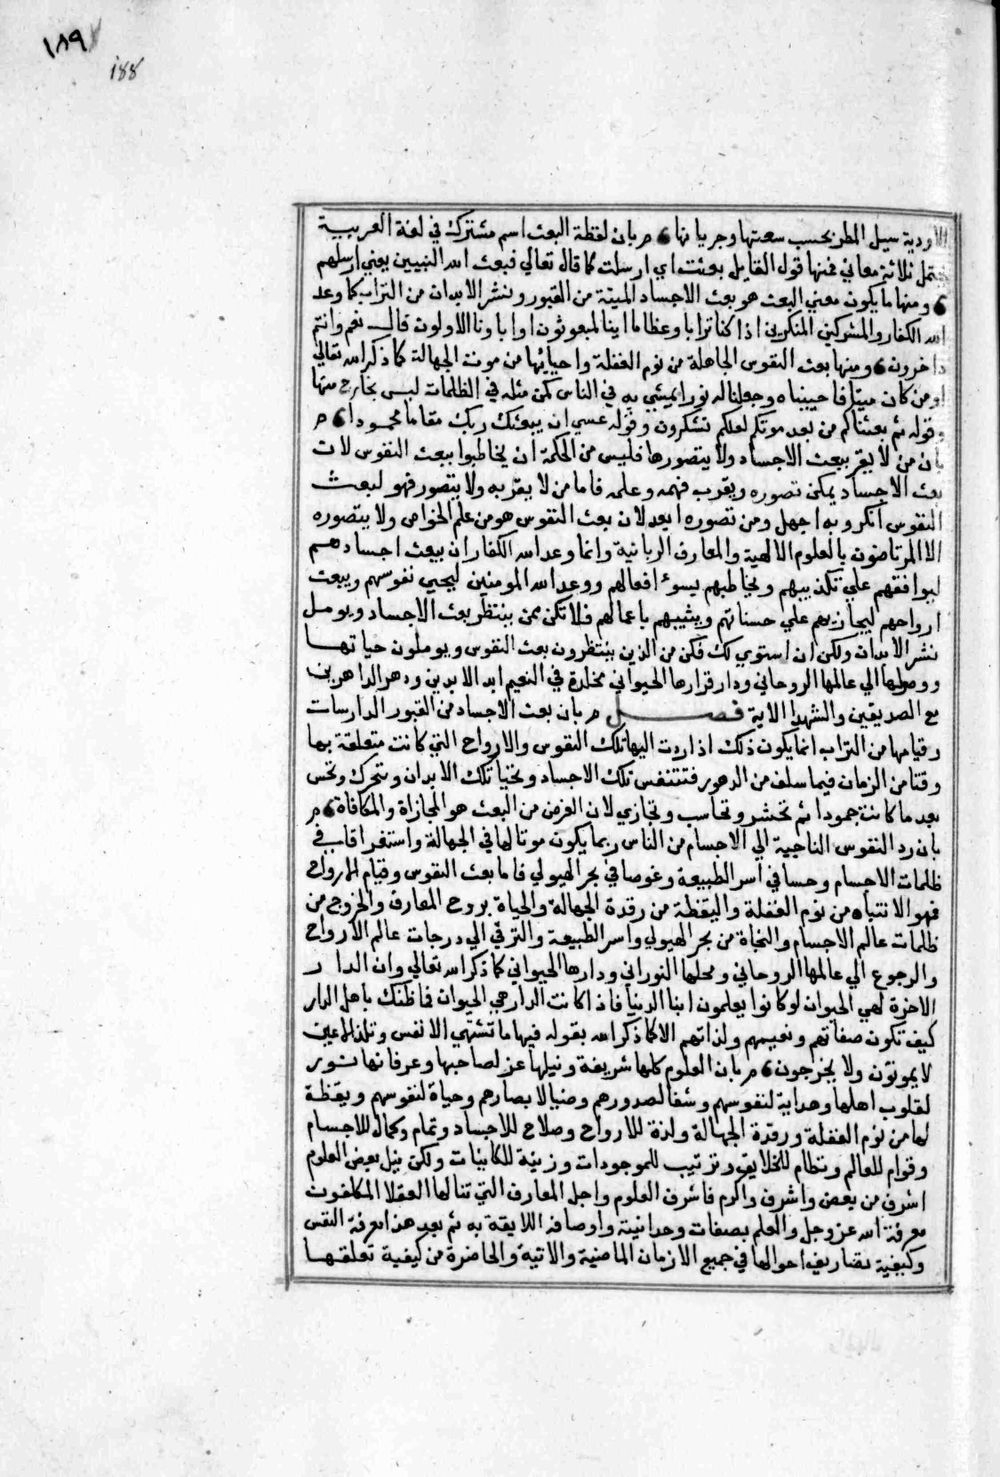 ١٨٩
188
الاودية سيل المطر بحسب سعتها وجريانها م بان لفظة البعث اسم مشترك في لغة العربية
يحتمل ثلاثة معاني فمنها قول القايل بعثت اي ارسلت كما قال تعالي فبعث الله النبيين يعني ارسلهم
ومنها ما يكون معني البعث هو بعث الاجساد الميتة من القبور ونشر الابدان من التراب كما وعد
الله الكفار والمشركين المنكرين اذا كنا ترابا وعظاما اينا لمبعوثون اوا باونا الاولون قال نعم وانتم
داخرون ومنها بعث النفوس الجاهلة من نوم الغفلة واحيائها من موت الجهالة كما ذكر الله تعالي
اومن كان ميتا فاحييناه وجعلنا له نورا يمشي به في الناس كمن مثله في الظلمات ليس بخارج منها
وقوله ثم بعثناكم من بعد موتكم لعلكم تشكرون وقوله عسي ان يبعثك ربك مقاما محمودا م
بان من لا يقر ببعث الاجساد ولا يتصورها فليس من الحكمة ان يخاطبوا ببعث النفوس لان
بعث الاجساد يمكن تصوره ويقرب فهمه وعلمه فاما من لا يقر به ولا يتصور فهو لبعث
النفوس انكر وبه اجهل ومن تصوره ابعد لان بعث النفوس هو من علم الخواص ولا يتصوره
الا المرتاضون بالعلوم الالهية والمعارف الربانية وانما وعد الله الكفار ان يبعث اجسادهم
ليوافقهم علي تكذيبهم ويخاطبهم بسوء افعالهم ووعد الله المومنين ليحيي نفوسهم ويبعث
ارواحهم ليجازيهم علي حسناتهم ويثيبهم باعمالهم فلا تكن ممن ينتظر بعث الاجساد ويومل
نشر الابدان ولكن ان استوي لك فكن من الذين ينتظرون بعث النفوس ويوملون حياتها
ووصولها الي عالمها الروحاني ودار قرارها الحيواني مخلدة في النعيم ابد الابدين ودهر الداهرين
مع الصديقين والشهدا الاية فصل م بان بعث الاجساد من القبور الدارسات
وقيامها من التراب انما يكون ذلك اذا ردت اليها تلك النفوس والارواح التي كانت متعلقة بها
وقتا من الزمان فيما سلف من الدهور فتتنفس تلك الاجساد وتحيا تلك الابدان وتتحرك وتحس
بعد ما كانت جمودا ثم تحشر وتحاسب وتجازي لان الغرض من البعث هو المجازاة والمكافاة م
بان رد النفوس الناجية الي الاجسام من الناس ربما يكون موتا لها في الجهالة واستغراقا في
ظلمات الاجسام وحبسا في اسر الطبيعة وغوصا في بحر الهيولي فاما بعث النفوس وقيام الارواح
فهو الانتباه من نوم الغفلة واليقظة من رقدة الجهالة والحياة بروح المعارف والخروج من
ظلمات عالم الاجسام والنجاة من بحر الهيولي واسر الطبيعة والترقي الي درجات عالم الارواح
والرجوع الي عالمها الروحاني ومحلها النوراني ودارها الحيواني كما ذكر الله تعالي وان الدار
الاخرة لهي الحيوان لو كانوا يعلمون ابنا الدنيا فاذا كانت الدار هي الحيوان فما ظنك باهل الدار
كيف تكون صفاتهم ونعيمهم ولذاتهم الا كما ذكر الله بقوله فيها ما تشتهي الانفس وتلذ الاعين
لا يموتون ولا يخرجون م بان العلوم كلها شريفة ونيلها عز لصاحبها وعرفانها نور
لقلوب اهلها وهداية لنفوسهم وشفا لصدورهم وضيا لابصارهم وحياة لنفوسهم ويقظة
لها من نوم الغفلة ورقدة الجهالة ولذة للارواح وصلاح للاجساد وتمام وكمال للاجسام
وقوام للعالم ونظام للخلايق وترتيب للموجودات وزينة للكاينات ولكن نيل بعض العلوم
اشرف من بعض واشرف واكرم فاشرف العلوم واجل المعارف التي تنالها العقلا المكلفون
معرفة الله عز وجل والعلم بصفات وحدانية واوصافه اللايقة به ثم بعد هذا معرفة النفس
وكيفية تصاريف احوالها في جميع الازمان الماضية والاتية والحاضرة من كيفية تعلقها